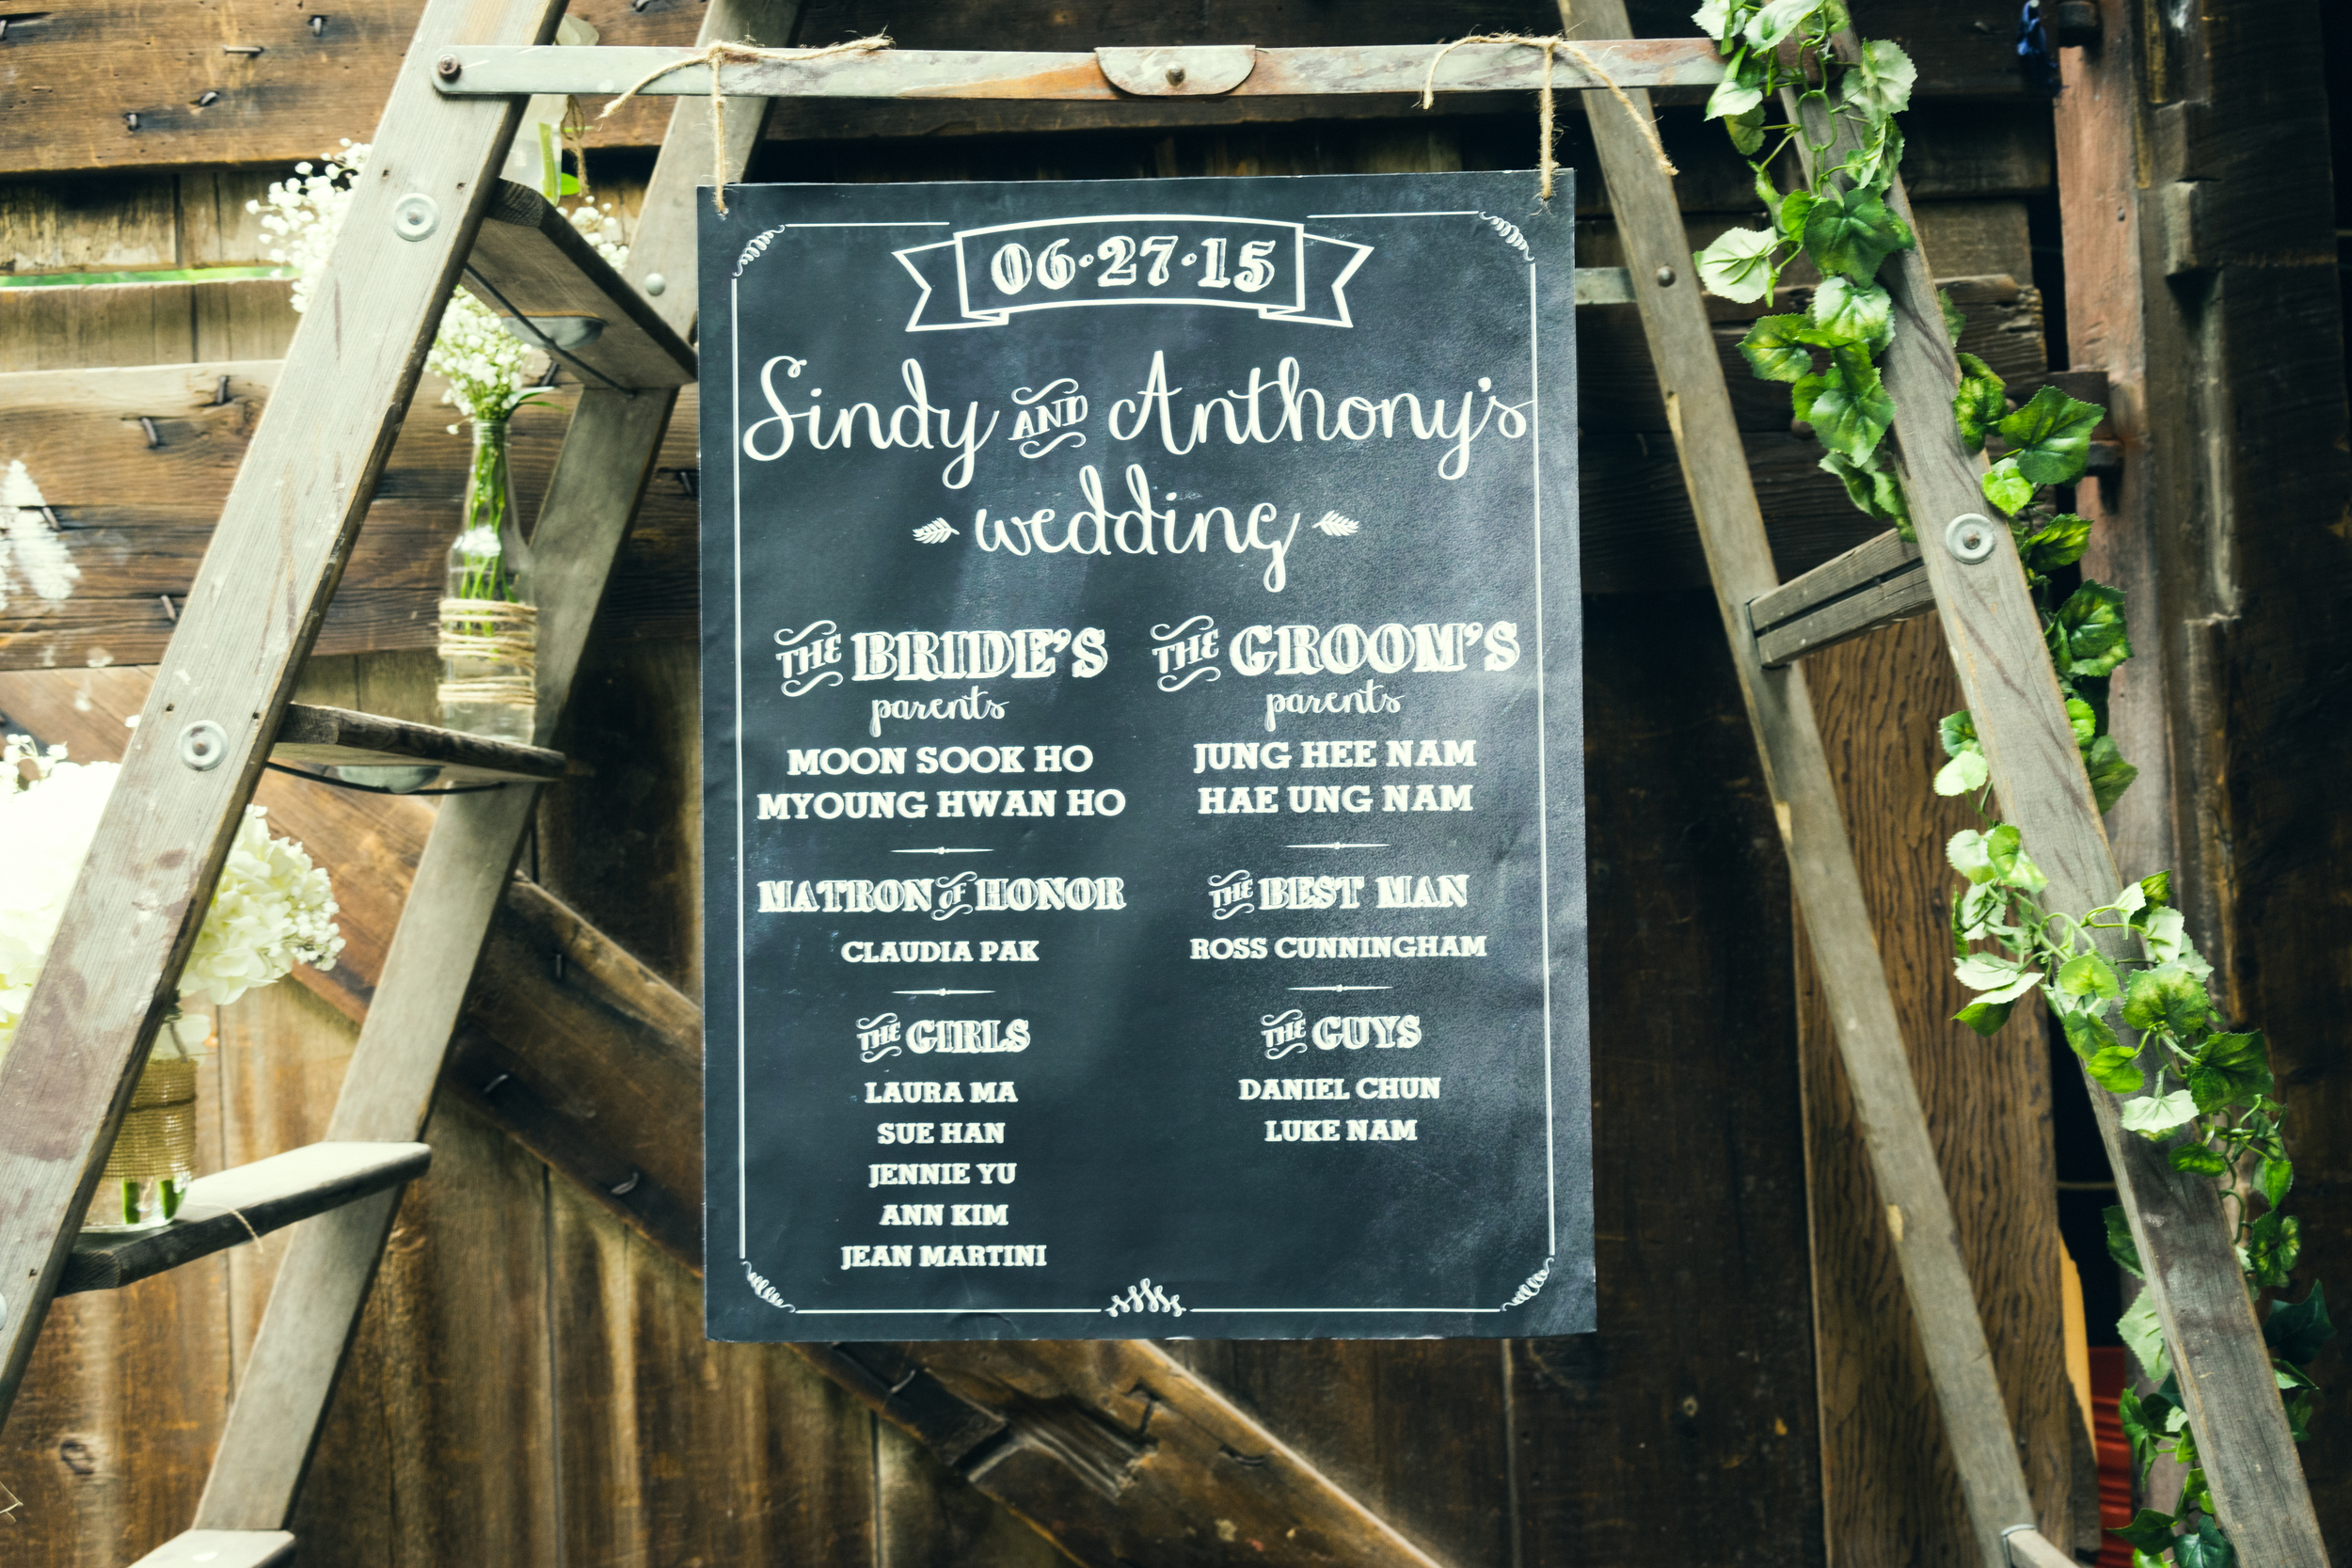 06·27·15
Sindy AND Anthony's
wedding
THE BRIDE'S
parents
MOON SOOK HO
MYOUNG HWAN HO
MATRON OF HONOR
CLAUDIA PAK
THE GIRLS
LAURA MA
SUE HAN
JENNIE YU
ANN KIM
JEAN MARTINI
THE GROOM'S
parents
JUNG HEE NAM
HAE UNG NAM
THE BEST MAN
ROSS CUNNINGHAM
THE GUYS
DANIEL CHUN
LUKE NAM